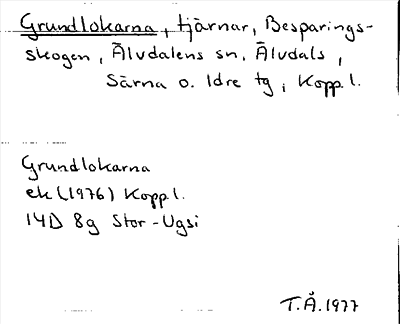 Grundlokarna, tjärnar, Besparings-
skogen, Älvdalens sn, Älvdals,
Särna o. Idre tg, Kopp l.
Grundlokarna
ek (1976) Kopp l.
14D 8g Stor-Ugsi
T.Å. 1977